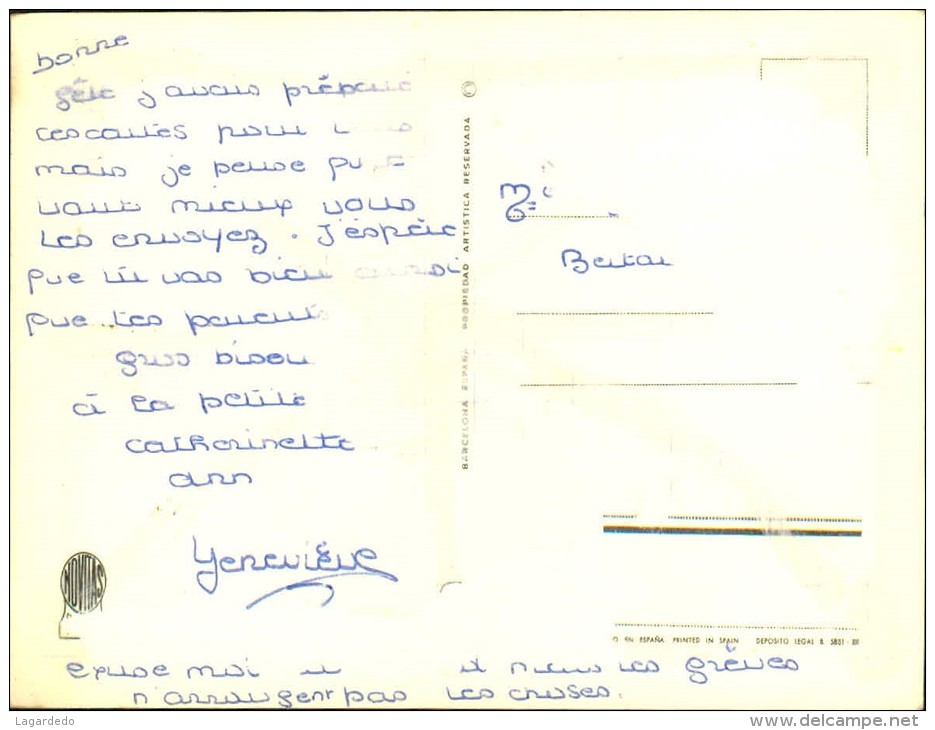 bonne
fête j avais préparé
ces cartes pour
mais je pense qu
vaut mieux vous
les envoyez. J'espère
que tu vas bien aussi
que les parents
gros bisou
à la petite
catherinette
ann
Geneviève
excuse moi
et puis les grèves
n'arrangent pas les choses.
Me
BARCELONA ESPAÑA PROPIEDAD ARTISTICA RESERVADA
NOVITAS
EN ESPAÑA PRINTED IN SPAIN DEPOSITO LEGAL B. 5801 - XII
Lagardedo
www.delcampe.net